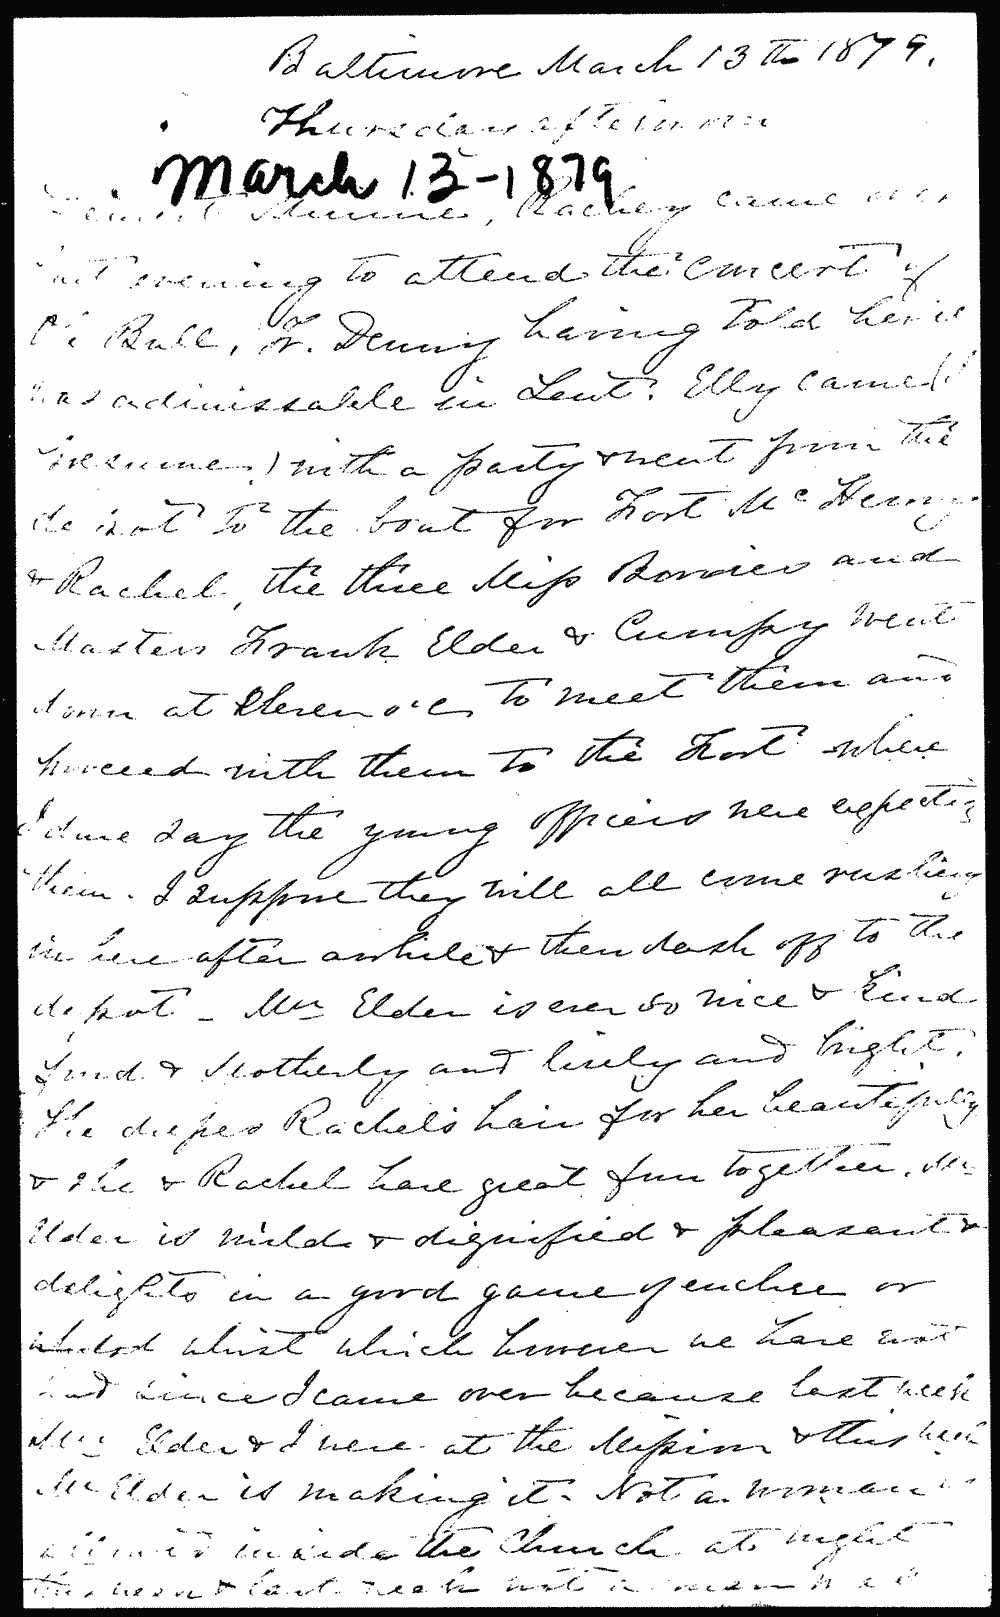 Baltimore March 13th 1879.
Thursday afternoon
March 13-1879
Dearest Minnie, Rachey came over
last evening to attend the concert of
Ole Bull, Fr. Denny having told her it
was admissable in Lent. Elly came (I
presume) with a party & went from the
depot to the boat for Fort McHenry
& Rachel, the three Miss and
Masters Frank Elder & Cumpy went
down at Eleven o'c to meet them and
proceed with them to the Fort where
I dare say the young officers were expecting
them. I suppose they will all come rushing
in here after awhile & then dash off to the
depot - Mrs Elder is ever so nice & kind
fond & Motherly and lively and bright.
She dresses Rachel's hair for her beautifully
& she & Rachel have great fun together. Mr
Elder is mild & dignified & pleasant &
delights in a good game of euchre or
whist which however we have not
had since I came over because last week
Mrs Elder & I were at the Mission & this week
Mr Elder is making it. Not a woman is
allowed inside the Church at night
this week & last week not a man was